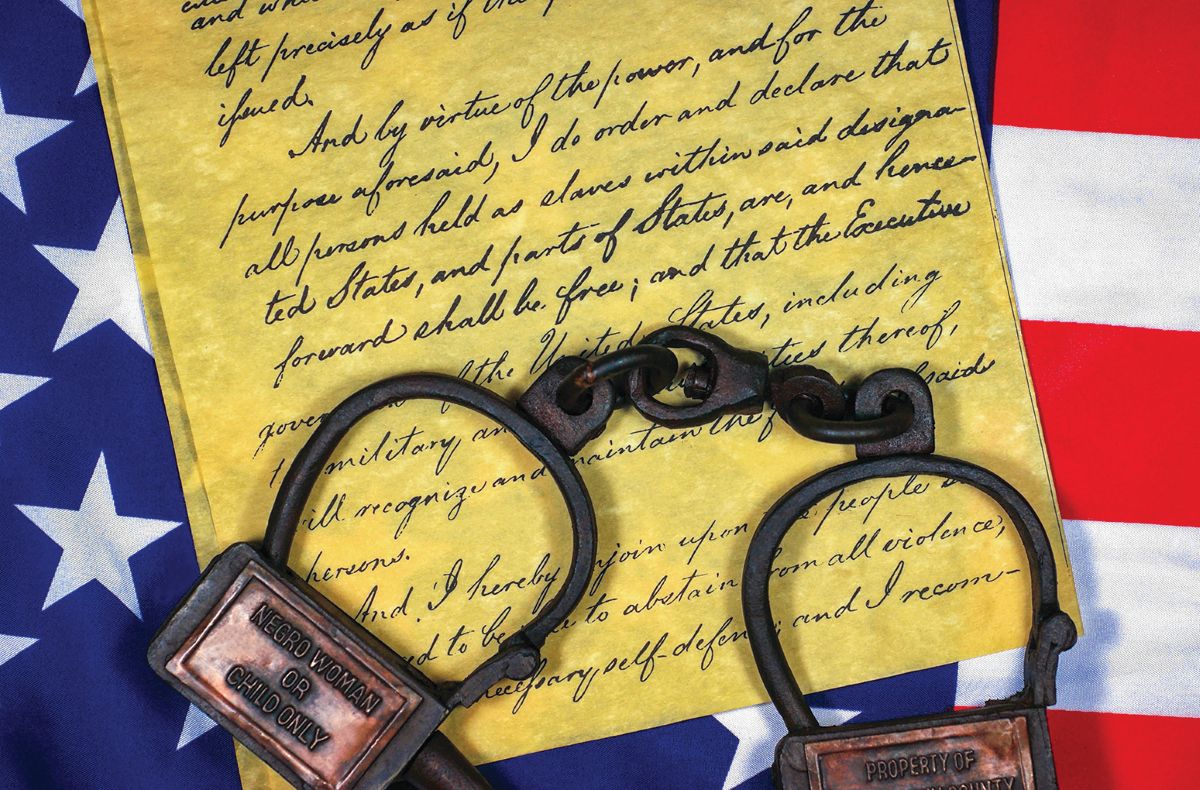 and
left precisely as if the
issued.
And by virtue of the power, and for the
purpose aforesaid, I do order and declare that
all persons held as slaves within said designa-
ted States, and parts of States, are, and hence-
forward shall be free; and that the Executive
of the United States, including
military, thereof,
said
recognize and maintain the
persons.
And I hereby join upon people
to abstain from all violence,
necessary self-defence; and I recom-
NEGRO WOMAN
OR
CHILD ONLY
PROPERTY OF
COUNTY